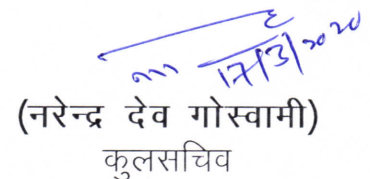 17/3/2020
(नरेन्द्र देव गोस्वामी)
कुलसचिव